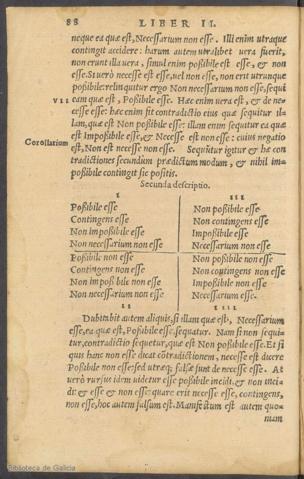 88 LIBER II.
neque ea quæ est, Necessarium non esse. Illi enim utraque
contingit accidere: harum autem utralibet vera fuerit,
non erunt illa vera, simul enim possibile est esse, & non
esse. Si verò necesse est esse, vel non esse, non erit utrunque
possibile: relinquitur ergo Non necessarium non esse, sequi
VII eam quæ est, Possibile esse. Hæc enim vera est, & de ne-
cesse esse: hæc enim fit contradictio eius quæ sequitur il-
lam, quæ est Non possibile esse: illam enim sequitur ea quæ
est Impossibile esse, & Necesse est non esse: cuius negatio
Corollarium est, Non est necesse non esse. Sequûtur igitur & hæ con
tradictiones secundum prædictum modum, & nihil im-
possibile contingit sic positis.
Secunda descriptio.
I III
Possibile esse Non possibile esse
Contingens esse Non contingens esse
Non impossibile esse Impossibile esse
Non necessarium non esse Necessarium non esse
Possibile non esse Non possibile non esse
Contingens non esse Non contingens non esse
Non impossibile non esse Impossibile non esse
Non necessarium esse Necessarium esse.
II IIII
Dubitabit autem aliquis, si illam quæ est, Necessarium
esse, ea quæ est, Possibile esse sequatur. Nam si non sequi-
tur, contradictio sequetur, quæ est Non possibile esse. Et si
quis hanc non esse dicat côtradictionem, necesse est dicere
Possibile non esse: sed utræq; falsæ sunt de necesse esse. At
verò rursus idem videtur esse possibile incidi, & non inci-
di: & esse & non esse: quare erit necesse esse, contingens,
non esse, hoc autem falsum est. Manifestum est autem quo-
niam
Biblioteca de Galicia